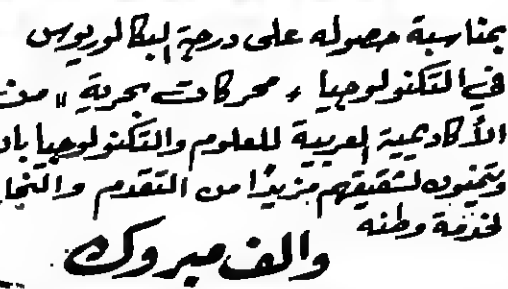 بمناسبة حصوله على درجة البكالوريوس
في التكنولوجيا " محركات بحرية " من
الأكاديمية العربية للعلوم والتكنولوجيا
ويتمنون لشقيقهم مزيدًا من التقدم
لخدمة وطنه
والف مبروك